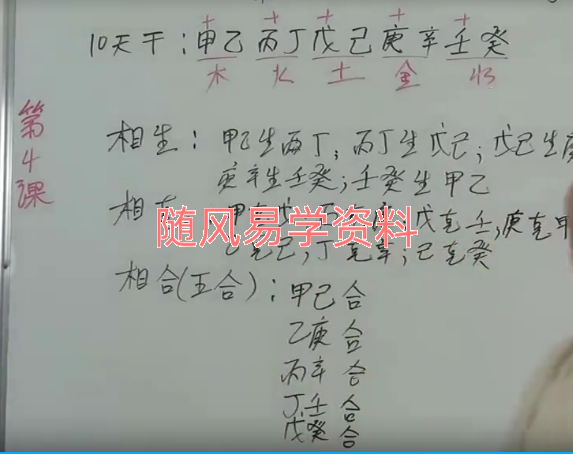 10天干：甲乙 丙丁 戊己 庚辛 壬癸
+ + + + +
木 火 土 金 水
第4课
相生：甲乙生丙丁；丙丁生戊己；戊己生庚
庚辛生壬癸；壬癸生甲乙
相克 戊克壬；庚克甲
随风易学资料
乙克己，丁克辛；己克癸
相合(五合)：甲己合
乙庚合
丙辛合
丁壬合
戊癸合